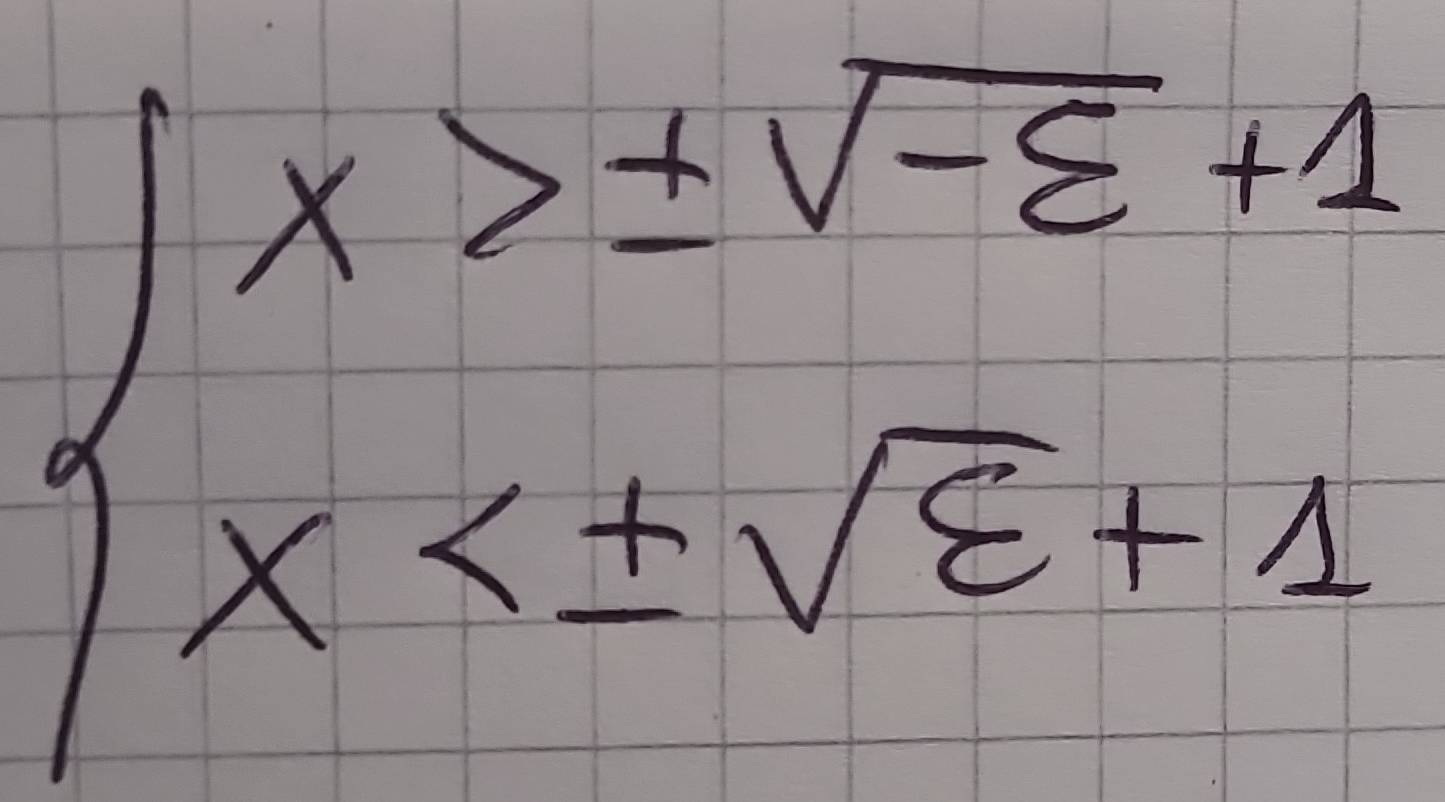 x > ± √-ε + 1
x < ± √ε + 1